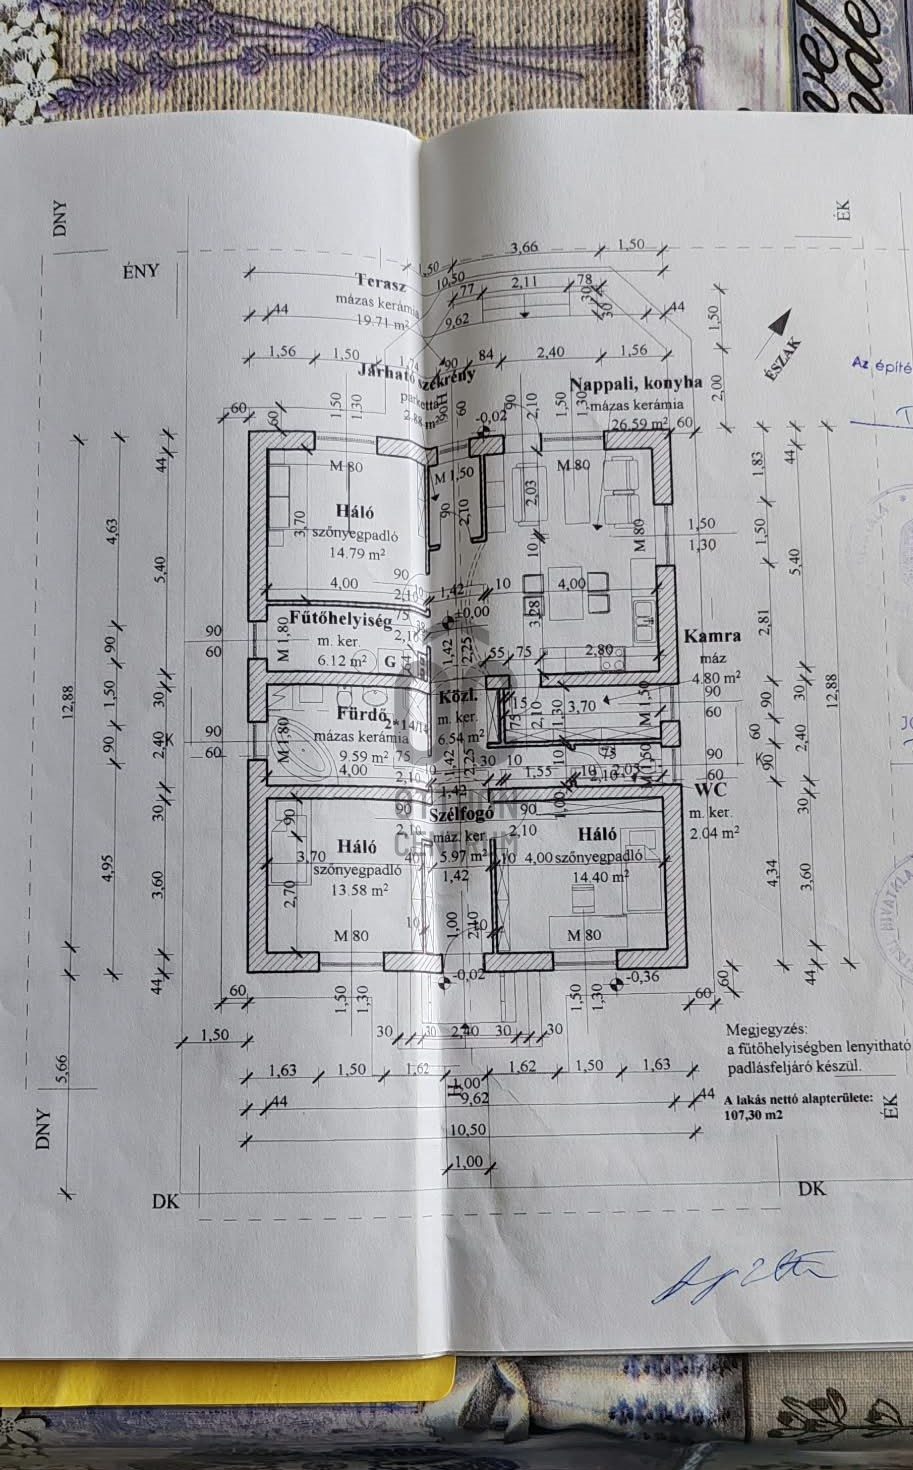 ve
nde
DNY
ÉK
ÉNY
3,66
1,50
1,50
10,50
Terasz
mázas kerámia
19.71 m²
77
2,11
78
30
30
44
9,62
44
1,50
ÉSZAK
Az építé
1,56
1,50
1,74
90
84
2,40
1,56
Járható szekrény
parketta
2.88 m²
Nappali, konyha
mázas kerámia
26.59 m²
2,00
60
60
1,50
1,30
90
60
-0,02
90
2,10
1,50
1,30
60
M 80
M 1,50
M 80
44
1,83
44
4,63
5,40
3,70
Háló
szőnyegpadló
14.79 m²
90
2,10
2,03
M 80
1,50
1,30
1,50
5,40
10
4,00
90
2,10
10
1,42
10
4,00
±0,00
3,28
2,81
Fűtőhelyiség
m. ker.
6.12 m²
M 1,80
75
2,10
G
90
60
90
1,42
2,25
55
75
2,80
Kamra
máz
4.80 m²
12,88
12,88
1,50
30
Közl.
m. ker.
6.54 m²
15
75
2,10
1,30
3,70
M 1,50
90
60
90
30
Fürdő
mázas kerámia
9.59 m²
2*14/14
M 1,80
90
60
90
2,40
4,00
75
2,10
10
1,42
2,25
30
10
1,55
10
75
2,10
2,05
90
60
60
90
2,40
WC
m. ker.
2.04 m²
OTTHON
CENTRUM
30
90
90
2,10
1,42
Szélfogó
máz. ker.
5.97 m²
1,42
90
2,10
1,00
30
Háló
szőnyegpadló
13.58 m²
3,70
40
10
4,00
Háló
szőnyegpadló
14.40 m²
4,95
3,60
2,70
4,34
3,60
10
1,00
2,10
10
M 80
M 80
44
-0,02
-0,36
44
60
60
60
1,50
1,30
1,50
1,30
1,50
30
30
2,40
30
30
5,66
1,63
1,50
1,62
1,00
1,62
1,50
1,63
44
9,62
44
10,50
1,00
Megjegyzés:
a fűtőhelyiségben lenyitható
padlásfeljáró készül.
A lakás nettó alapterülete:
107,30 m2
DNY
ÉK
DK
DK